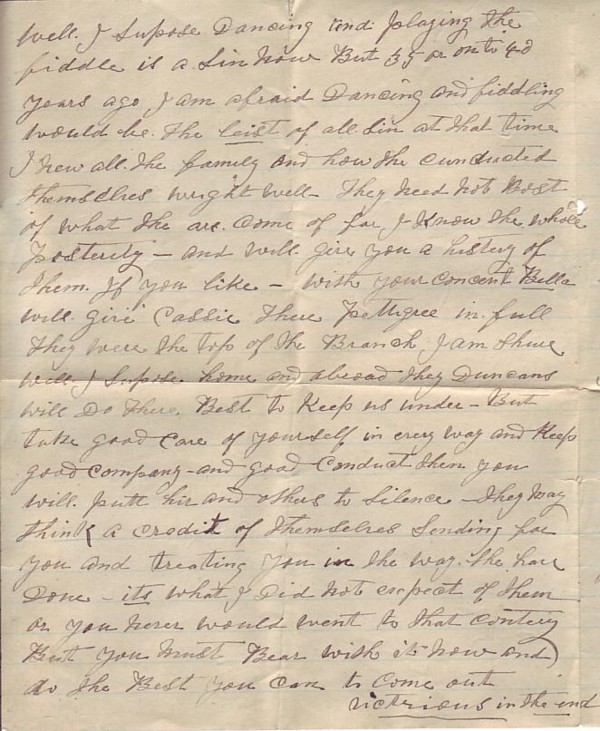 Well. I Supose Dancing and playing the
fiddle is a Sin Now But 35 or on to 40
years ago I am afraid Dancing and fiddling
would be. the leist of all Sin at that time
I new all. the family and how the cunducted
themselves wright well - They Need Not Bost
of what the are. Come of for I Know the whole
Posterity - and will give you a history of
them. If you like - with your concent Bella
will. give Cassie There Pettigree in full
They were the top of the Branch I am Shure
Well. I Supose. home and abroad they Duncans
will Do there. Best to Keep us under - But
take good care of yourself in every way and Keep
good company - and good conduct then you
will. putt hir and others to Silence - They may
think a credit of themselves Sending for
you and treating you in the way. the have
Done - its what I Did Not expect of them
or you never would went to that Contery
But you must Bear with it Now and
do the Best you can to come out
victrious in the end